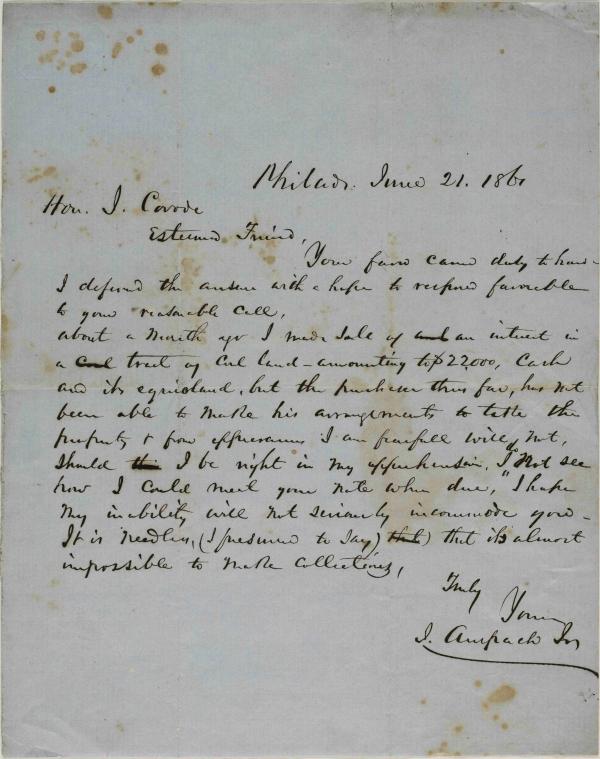 Philada. June 21. 186
Hon. J. Covode
Esteemed Friend,
Your favor came duly to hand -
I deferred the answer with a hope to respond favorable
to your reasonable call,
about a Month ago I made Sale of an interest in
a tract of Coal land - amounting to $22,000, Cash
and its equivalent, but the purchaser thus far, has not
been able to make his arrangements to take the
property & from appearances I am fearfull will not,
Should I be right in my apprehension, I not see
how I Could meet your note when due, I hope
my inability will not seriously incommode you -
It is needless, (I presume to say) that its almost
impossible to make Collections,
Truly
Yours
J. Anspach Jr